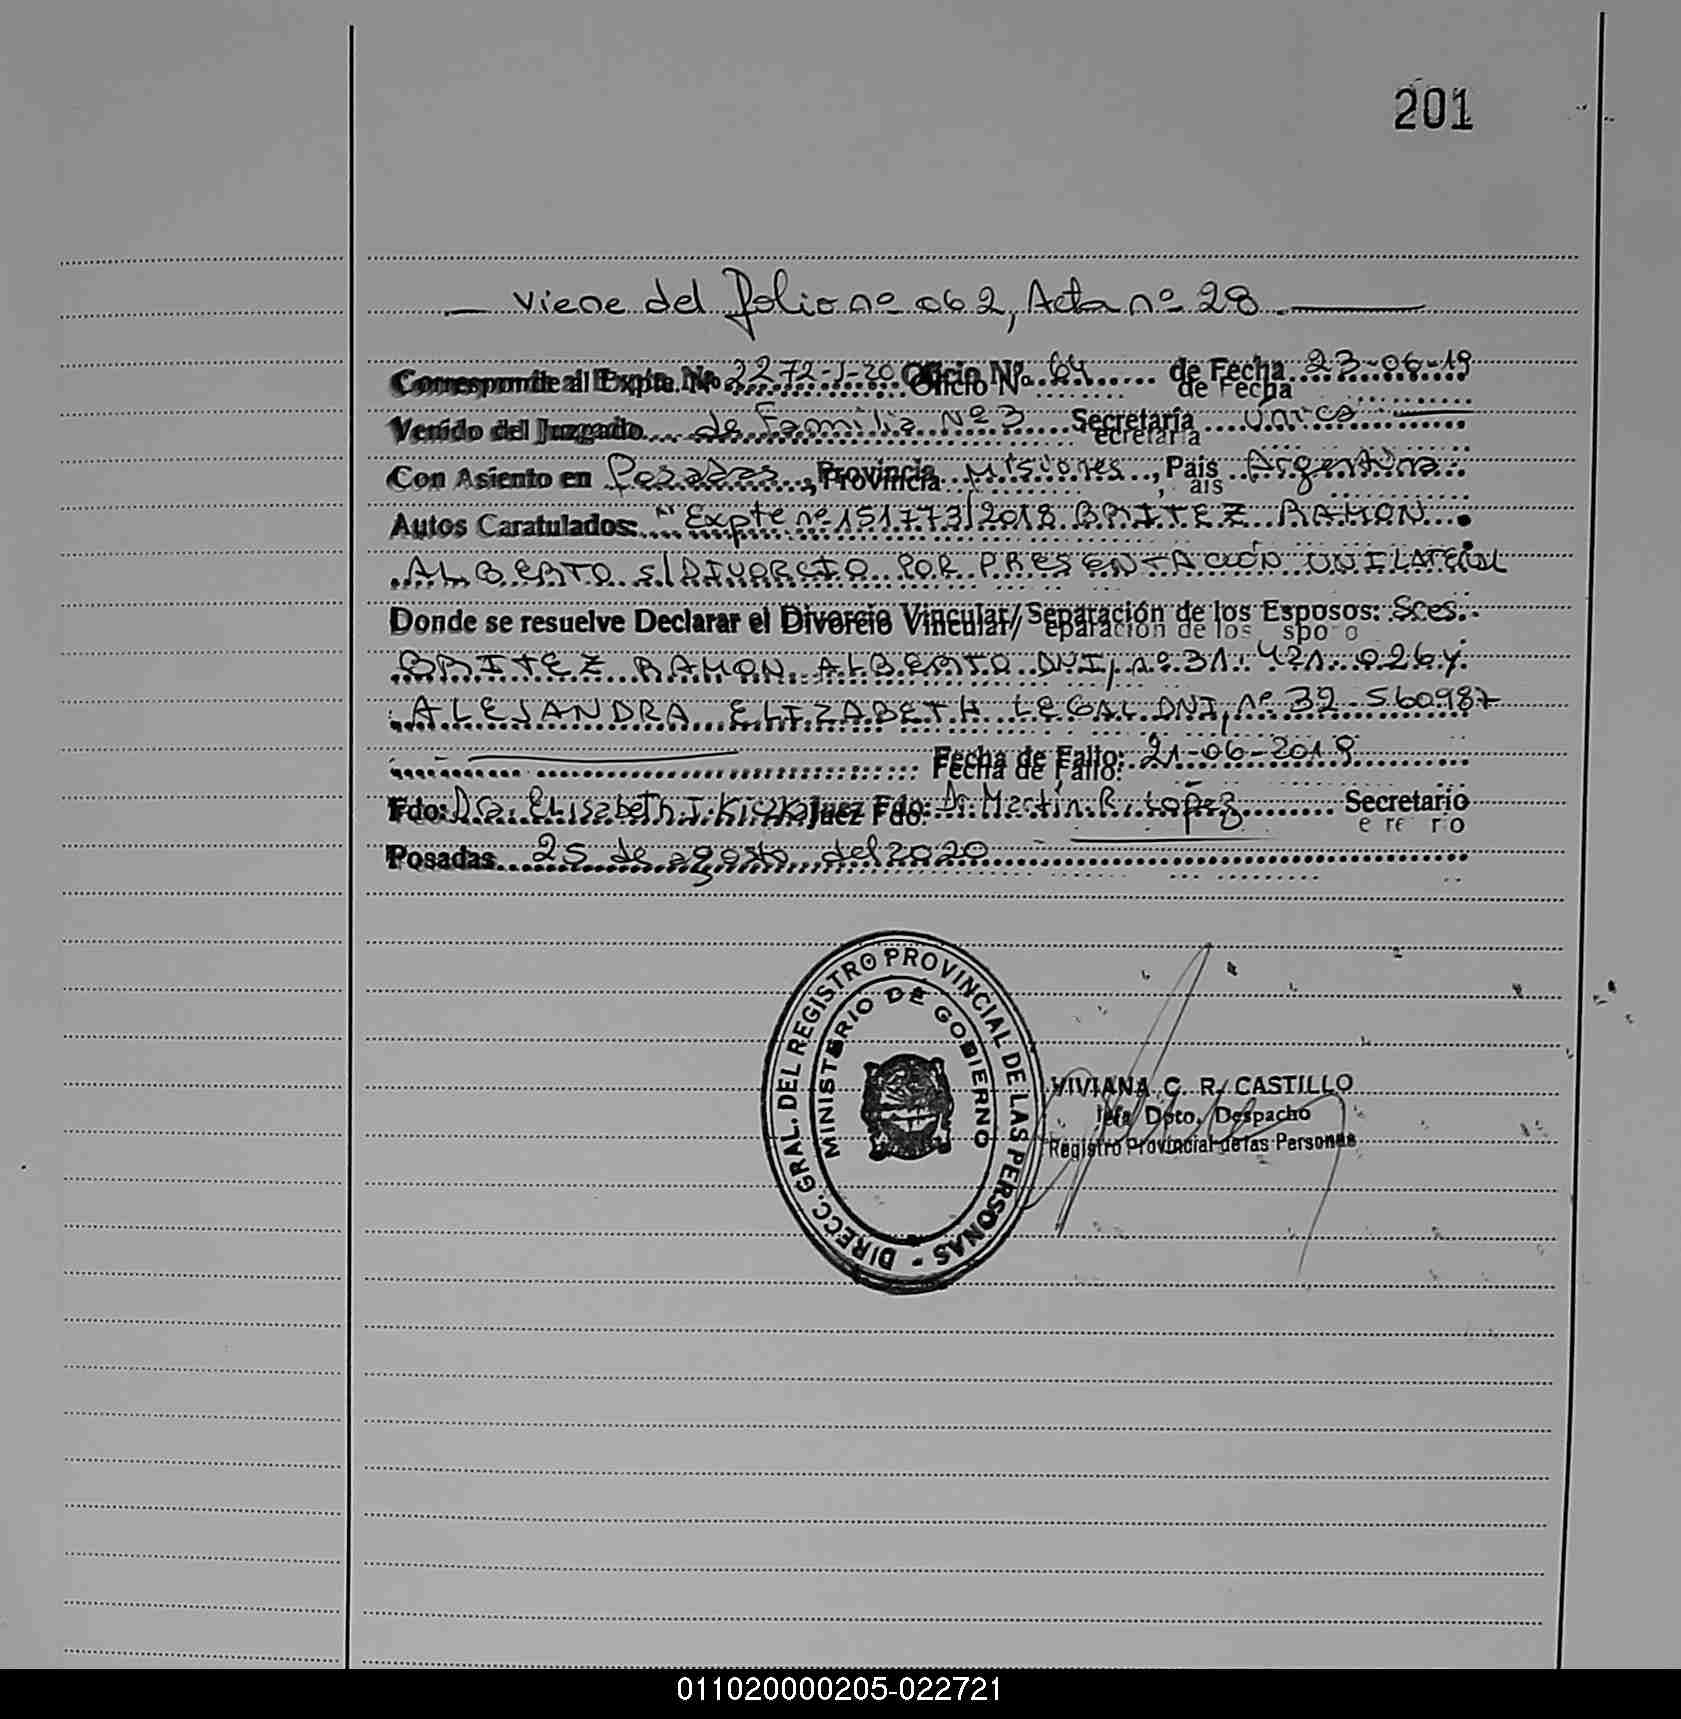 201
— viene del folio nº 062, Acta nº 28. —
Corresponde al Expte. Nº 2272-J-20 Oficio Nº 64 de Fecha 23-06-19
Venido del Juzgado de Familia Nº 3 Secretaría Única
Con Asiento en Posadas, Provincia Misiones, País Argentina
Autos Caratulados: "Expte nº 151773/2018 BRITEZ RAMON
ALBERTO s/DIVORCIO POR PRESENTACIÓN UNILATERAL
Donde se resuelve Declarar el Divorcio Vincular/Separación de los Esposos: Sres.
BRITEZ RAMON ALBERTO DNI, nº 31.421.026 y
ALEJANDRA ELIZABETH LEGAL DNI, nº 32.560987
Fecha de Fallo: 21-06-2019
Fdo: Dra. Elisabeth J. Juez Fdo: Dr. Martín R. López Secretario
Posadas 25 de agosto del 2020
DIRECC. GRAL. DEL REGISTRO PROVINCIAL DE LAS PERSONAS -
MINISTERIO DE GOBIERNO
VIVIANA C. R. CASTILLO
Jefa Dpto. Despacho
Registro Provincial de las Personas
011020000205-022721